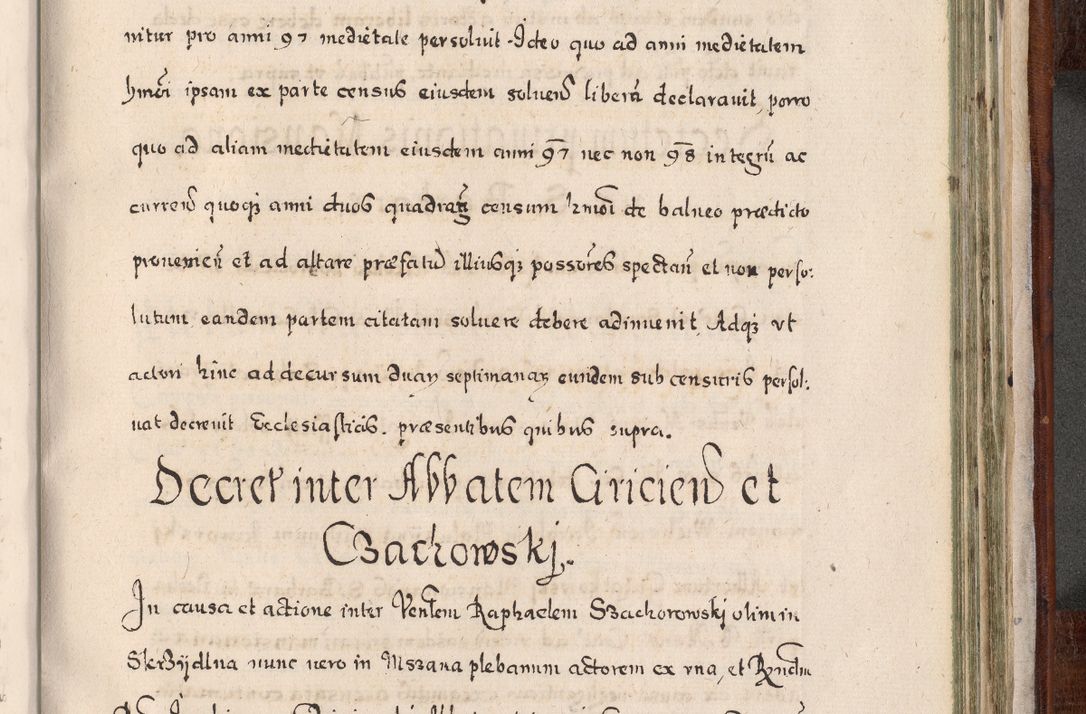 nitur pro anni 97 medietate persoluit. Ideo quo ad anni medietatem
hmoi ipsam ex parte census eiusdem soluen liberū declarauit, porro
quo ad aliam medietatem eiusdem anni 97 nec non 98 integrū ac
curren quoqꝫ anni duos quadrag censum hmoi de balneo prædicto
prouenien et ad altare præfatū illiusqꝫ possores spectan et non perso:
lutum, eandem partem citatam soluere debere adinuenit, Adqꝫ vt
actori hinc ad decursum duaꝝ septimanaꝝ eundem sub censuris persol:
uat decreuit Ecclesiasticis. præsentibus quibus supra.
Decret inter Abbatem Ciricien et
Czachowskj.
In causa et actione inter Venlem Raphaelem Szachorowskj olim in
Skrzÿdlna nunc uero in Mszana plebanum actorem ex vna, et Rndm